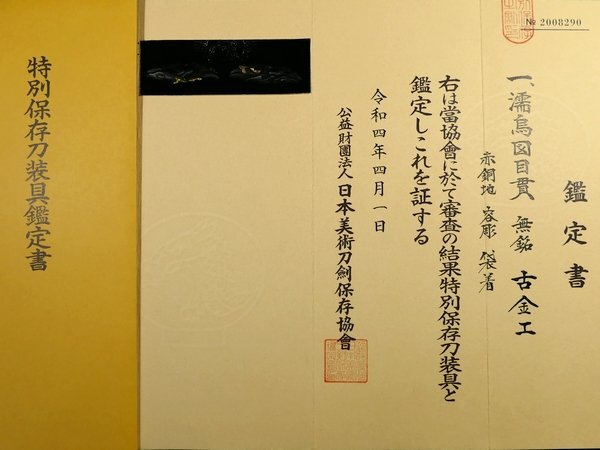 特別保存刀装具鑑定書
№ 2008290
鑑定書
一、濡烏図目貫 無銘 古金工
赤銅地 容彫 袋着
右は當協會に於て審査の結果特別保存刀装具と
鑑定しこれを証する
令和四年四月一日
公益財團法人 日本美術刀劍保存協會